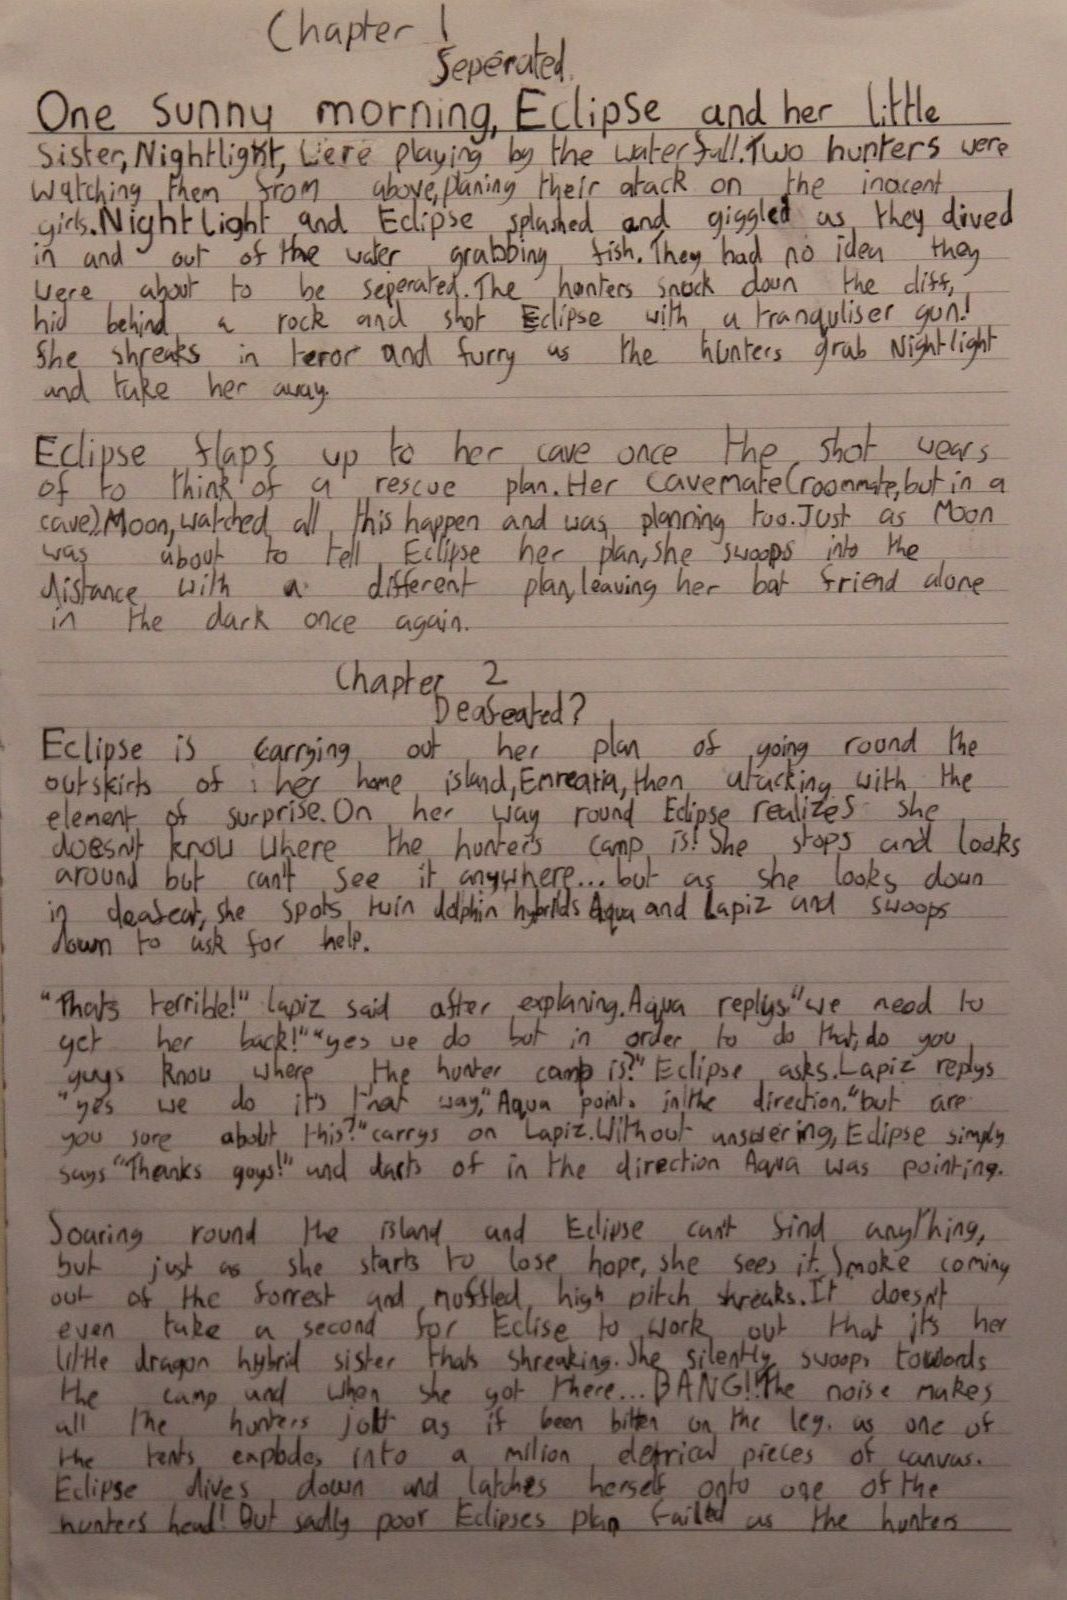 Chapter 1
Seperated.
One sunny morning, Eclipse and her little
sister, Nightlight, were playing by the waterfall. Two hunters were
watching them from above, planing their atack on the inocent
girls. Nightlight and Eclipse splashed and giggled as they dived
in and out of the water grabbing fish. They had no idea they
were about to be seperated. The hunters snuck down the cliff,
hid behind a rock and shot Eclipse with a tranquliser gun!
She shreaks in teror and furry as the hunters grab Nightlight
and take her away.
Eclipse flaps up to her cave once the shot wears
of to think of a rescue plan. Her cavemate (roommate, but in a
cave). Moon, watched all this happen and was planning too. Just as Moon
was about to tell Eclipse her plan, she swoops into the
distance with a different plan, leaving her bat friend alone
in the dark once again.
Chapter 2
Deafeated?
Eclipse is carrying out her plan of going round the
outskirts of her home island, Enrearia, then atacking with the
element of surprise. On her way round Eclipse realizes she
doesn't know where the hunters camp is! She stops and looks
around but can't see it anywhere... but as she looks down
in deafeat, she spots twin dolphin hybrids Aqua and Lapiz and swoops
down to ask for help.
"Thats terrible!" Lapiz said after explaning. Aqua replys "we need to
get her back!" "yes we do but in order to do that, do you
guys know where the hunter camp is?" Eclipse asks. Lapiz replys
"yes we do it's that way," Aqua points in the direction. "but are
you sore about this?" carrys on Lapiz. Without answering, Eclipse simply
says "Thanks guys!" and darts of in the direction Aqua was pointing.
Soaring round the island and Eclipse can't find anything,
but just as she starts to lose hope, she sees it. Smoke coming
out of the forrest and muffled, high pitch shreaks. It doesn't
even take a second for Eclise to work out that its her
little dragon hybrid sister thats shreaking. She silently swoops towords
the camp and when she got there... BANG!! The noise makes
all the hunters jolt as if been bitten on the leg. as one of
the tents explodes into a milion eletrical pieces of canvas.
Eclipse dives down and latches herself onto one of the
hunters head! But sadly poor Eclipses plan failed as the hunters